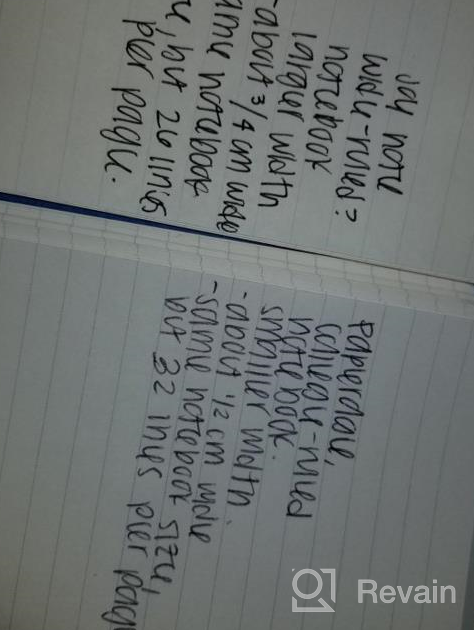 Joy note
wide-ruled?
notebook
larger width
-about 3/4 cm wide
notebook
but 26 lines
per page.
Paperdale,
college-ruled
notebook.
smaller width
-about 1/2 cm wide
-same notebook size,
but 32 lines per
Revain